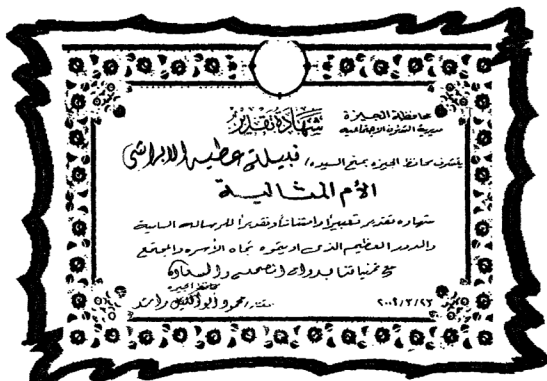 محافظة الجيزة
مديرية الشئون الاجتماعية
شهادة تقدير
يتشرف محافظ الجيزة بمنح السيدة / نبيلة عطيه الابراشى
الأم المثالية
شهادة تقدير تعبيراً وامتناناً وتقديراً للرسالة السامية
والدور العظيم الذى تجاه الأسرة والمجتمع
مع تمنياتنا بدوام الصحة والسعادة
محافظ الجيزة
محمود أبو الليل راشد